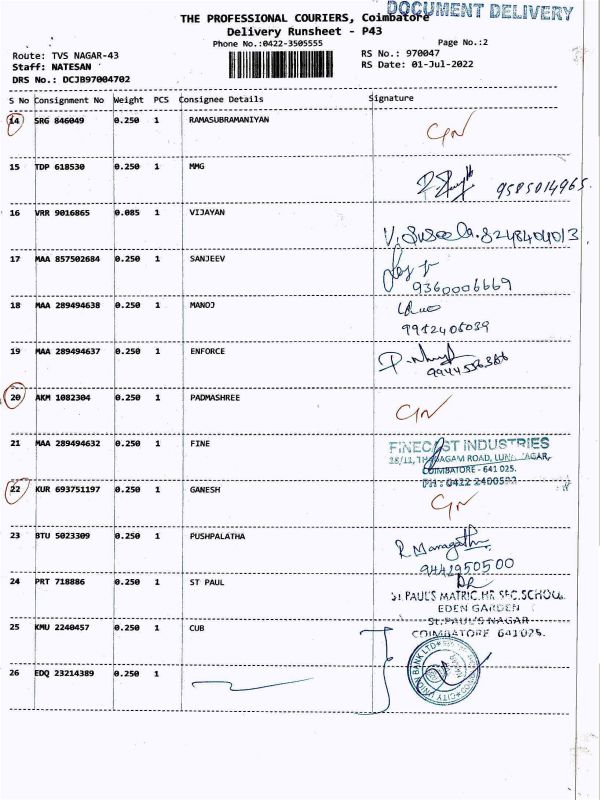 DOCUMENT DELIVERY
THE PROFESSIONAL COURIERS, Coimbatore
Delivery Runsheet - P43
Phone No.:0422-3505555
Page No.:2
Route: TVS NAGAR-43
RS No.: 970047
Staff: NATESAN
RS Date: 01-Jul-2022
DRS No.: DCJB97004702
S No Consignment No Weight PCS Consignee Details Signature
14 SRG 846049 0.250 1 RAMASUBRAMANIYAN
15 TDP 618530 0.250 1 MMG 9585014965
16 VRR 9016865 0.085 1 VIJAYAN
17 MAA 857502684 0.250 1 SANJEEV
9360006669
18 MAA 289494638 0.250 1 MANOJ
19 MAA 289494637 0.250 1 ENFORCE
20 AKM 1082304 0.250 1 PADMASHREE
21 MAA 289494632 0.250 1 FINE
FINECAST INDUSTRIES
COIMBATORE - 641 025.
22 KUR 693751197 0.250 1 GANESH
23 BTU 5023309 0.250 1 PUSHPALATHA
9442950500
24 PRT 718886 0.250 1 ST PAUL
ST. PAUL'S MATRIC. HR SEC. SCHOOL
EDEN GARDEN
ST. PAUL'S NAGAR
COIMBATORE 641025.
25 KMU 2240457 0.250 1 CUB
CITY UNION BANK LTD
26 EDQ 23214389 0.250 1